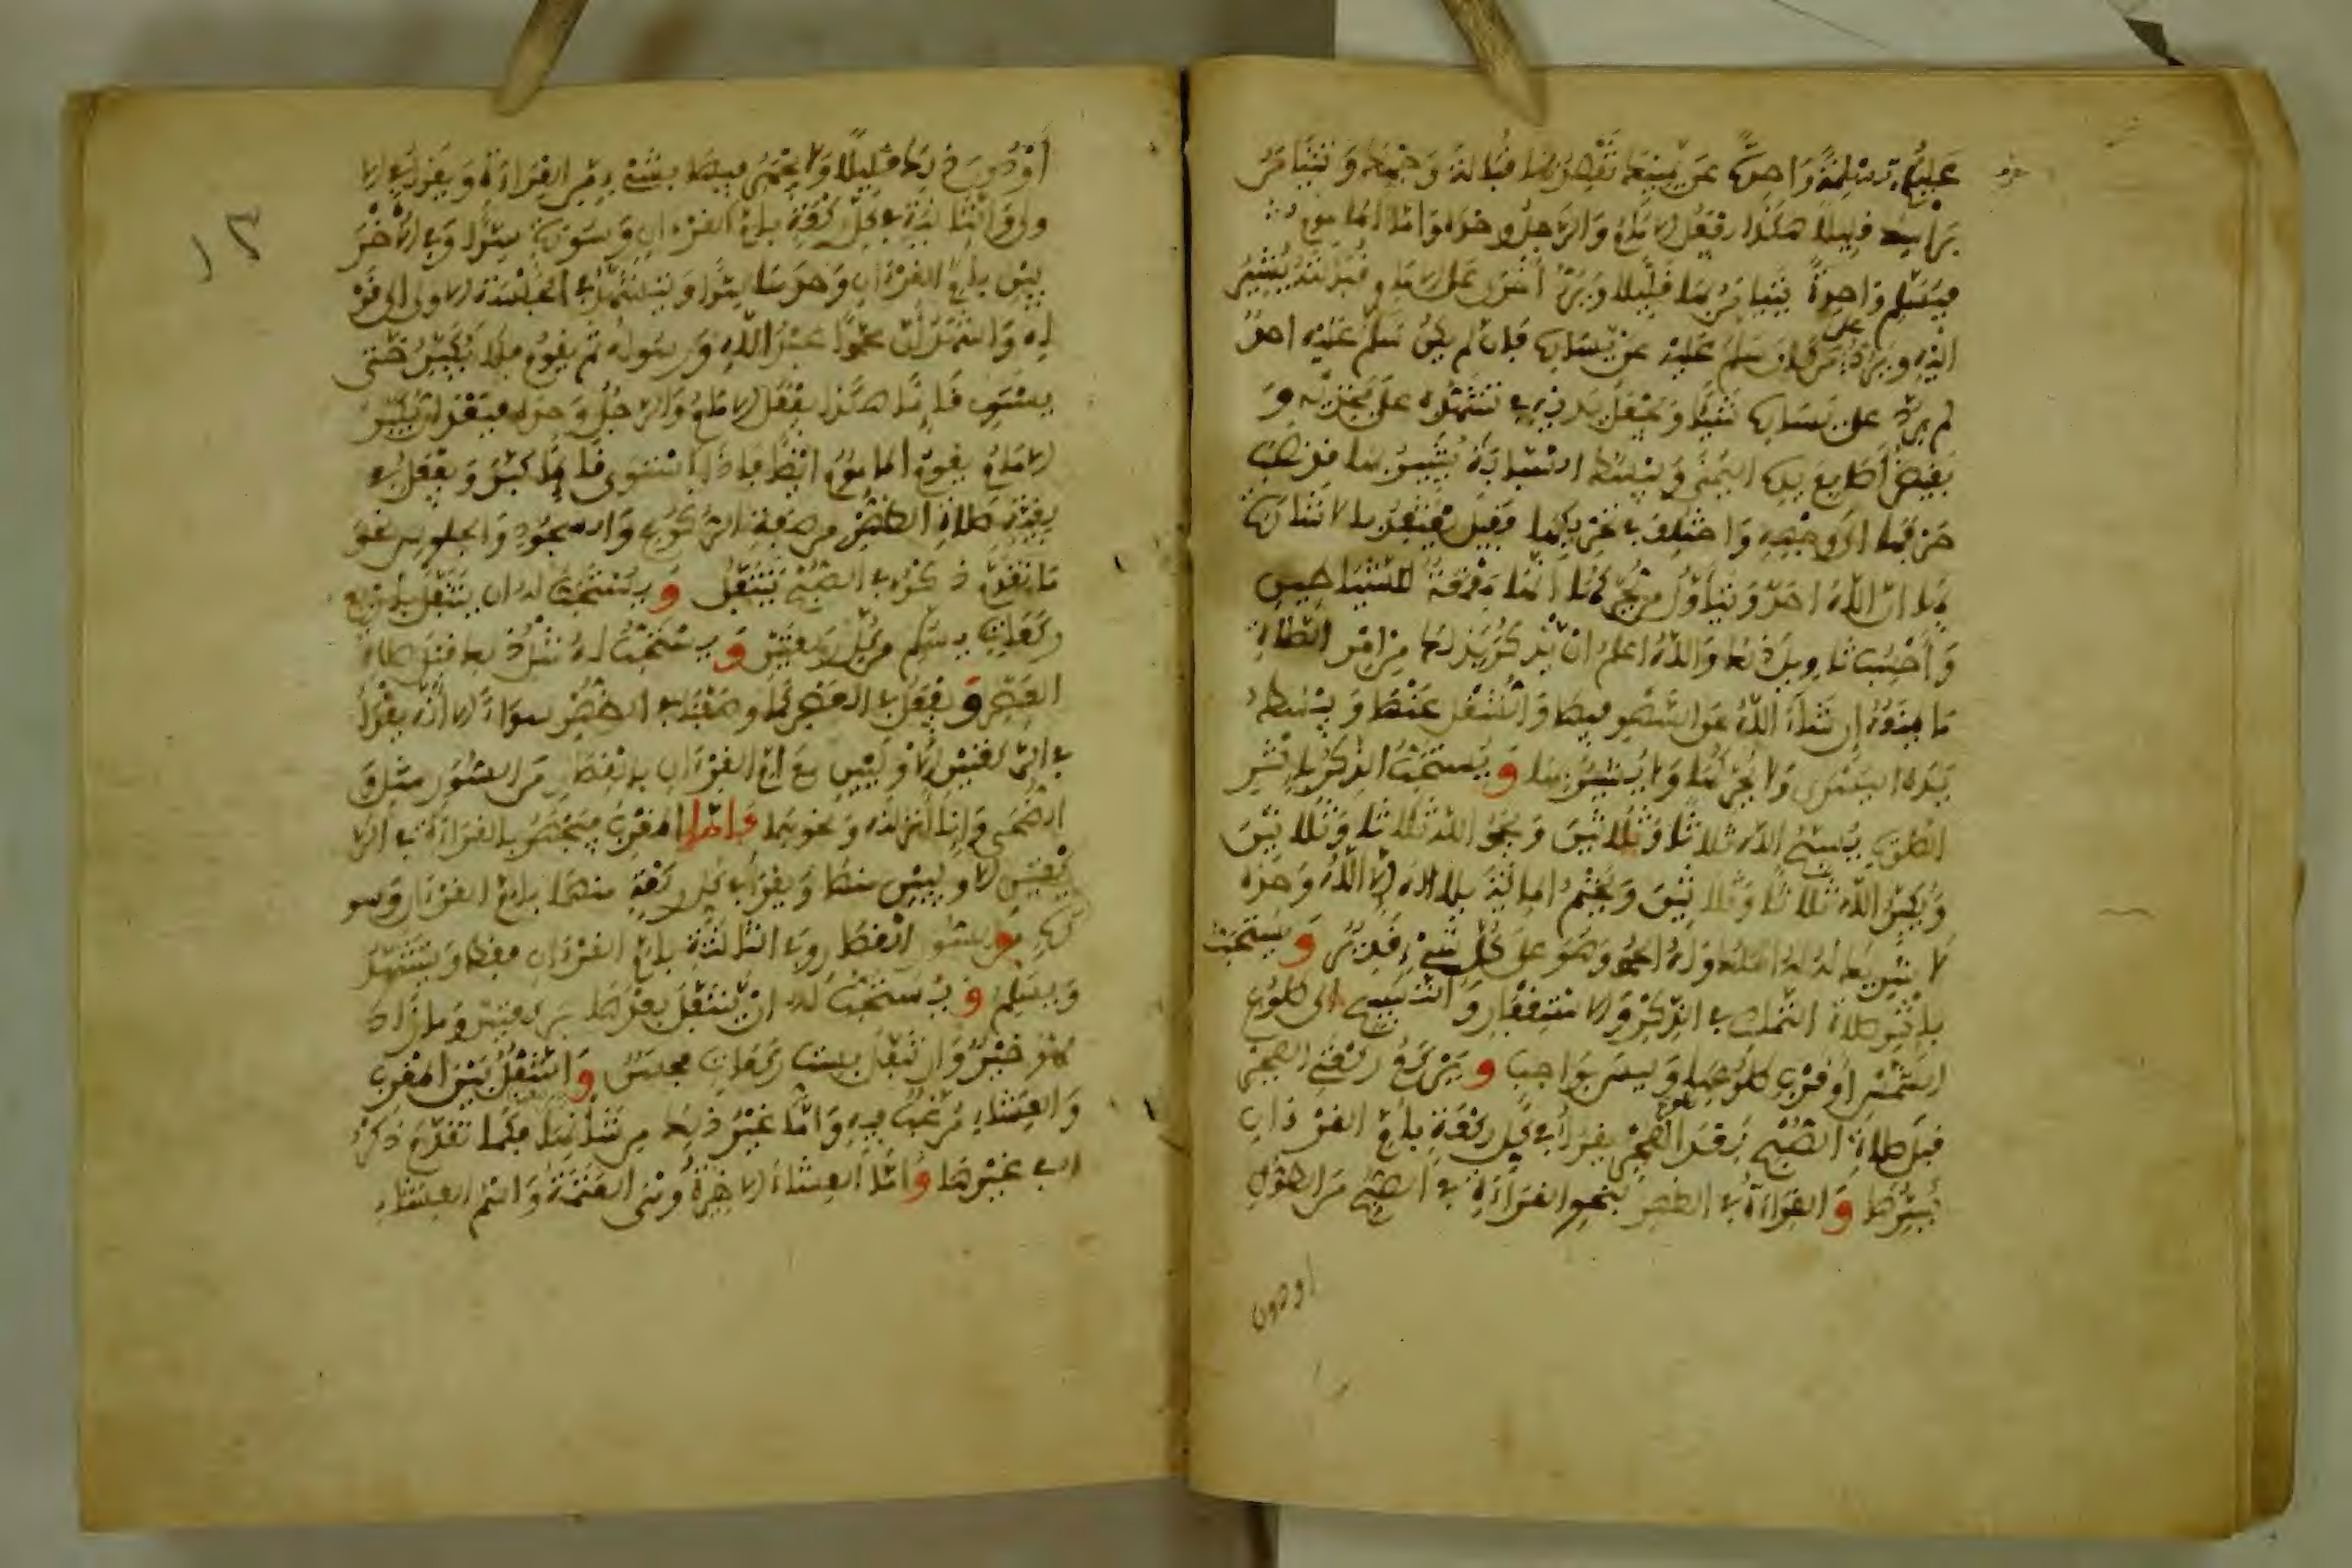 عليكم تسليمة واحدة عن يمينك تقصد بها قبالة وجهك وتتيامن
برأسك قليلا هكذا يفعل الامام والرجل وحده واما الماموم
فيسلم واحدة يتيامن بها قليلا ويرد اخرى على الامام قبالته يشير بها
اليه ويرد على من كان سلم عليه عن يساره فإن لم يكن سلم عليه احد
لم يرد على يساره شيئا ويجعل يديه في تشهده على فخذيه و
يقبض أصابع يده اليمنى ويبسط السبابة يشير بها وقد نصب
حرفها الى وجهه واختلف في تحريكها فقيل يعتقد بالاشارة
بها ان الله احد ويتأول من يحركها انها مقمعة للشيطان
وأحسب تاويل ذلك والله اعلم ان يذكر بذلك من امر الصلاة
ما يمنعه إن شاء الله عن السهو فيها والشغل عنها ويبسط
يده اليسرى ولا يحركها ولا يشير بها ويستحب الذكر بإثر
الصلوات يسبح الله ثلاثا وثلاثين ويحمد الله ثلاثا وثلاثين
ويكبر الله ثلاثا وثلاثين ويختم المائة بلا اله الا الله وحده
لا شريك له له الملك وله الحمد وهو على كل شيء قدير ويستحب
بإثر صلاة الصبح التمادي في الذكر والاستغفار والتسبيح الى طلوع
الشمس أو قرب طلوعها وليس بواجب ويركع ركعتي الفجر
قبل صلاة الصبح بعد الفجر يقرأ في كل ركعة بأم القرءان
يسرها والقراءة في الظهر بنحو القراءة في الصبح من الطوال
او دون
١٣
أو دون ذلك قليلا ولا يجهر فيها بشيء من القراءة ويقرأ في الا
ولى والثانية في كل ركعة بأم القرءان وسورة سرا وفي الأخر
يين بأم القرءان وحدها سرا ويتشهد في الجلسة الاولى الى قو
له واشهد أن محمدا عبد الله ورسوله ثم يقوم فلا يكبر حتى
يستوي قائما هكذا يفعل الامام والرجل وحده
الامام يقوم الماموم ايضا فإذا استوى قائما كبر ويفعل في
بقية صلاة الظهر من صفة الركوع والسجود والجلوس نحو
ما تقدم ذكره في الصبح يتنفل ويستحب له ان يتنفل بأربع
ركعات يسلم من كل ركعتين ويستحب له مثل ذلك قبل صلاة
العصر ويفعل في العصر كما وصفنا في الظهر سواء الا أنه يقرأ
في الركعتين الأوليين مع ام القرءان بالقصار من السور مثل و
الضحى وإنا أنزلناه ونحوهما وأما المغرب فيجهر بالقراءة في الر
كعتين الاوليين منها ويقرأ في كل ركعة منهما بأم القرءان وسو
رة من السور القصار وفي الثالثة بأم القرءان فقط ويتشهد
ويسلم ويستحب له ان يتنفل بعدها بركعتين وما زاد
فهو خير وان تنفل بست ركعات فحسن والتنفل بين المغرب
والعشاء مرغب فيه وأما غير ذلك من شأنها فكما تقدم ذكره
في غيرها وأما العشاء الاخيرة وهي العتمة واسم العشاء